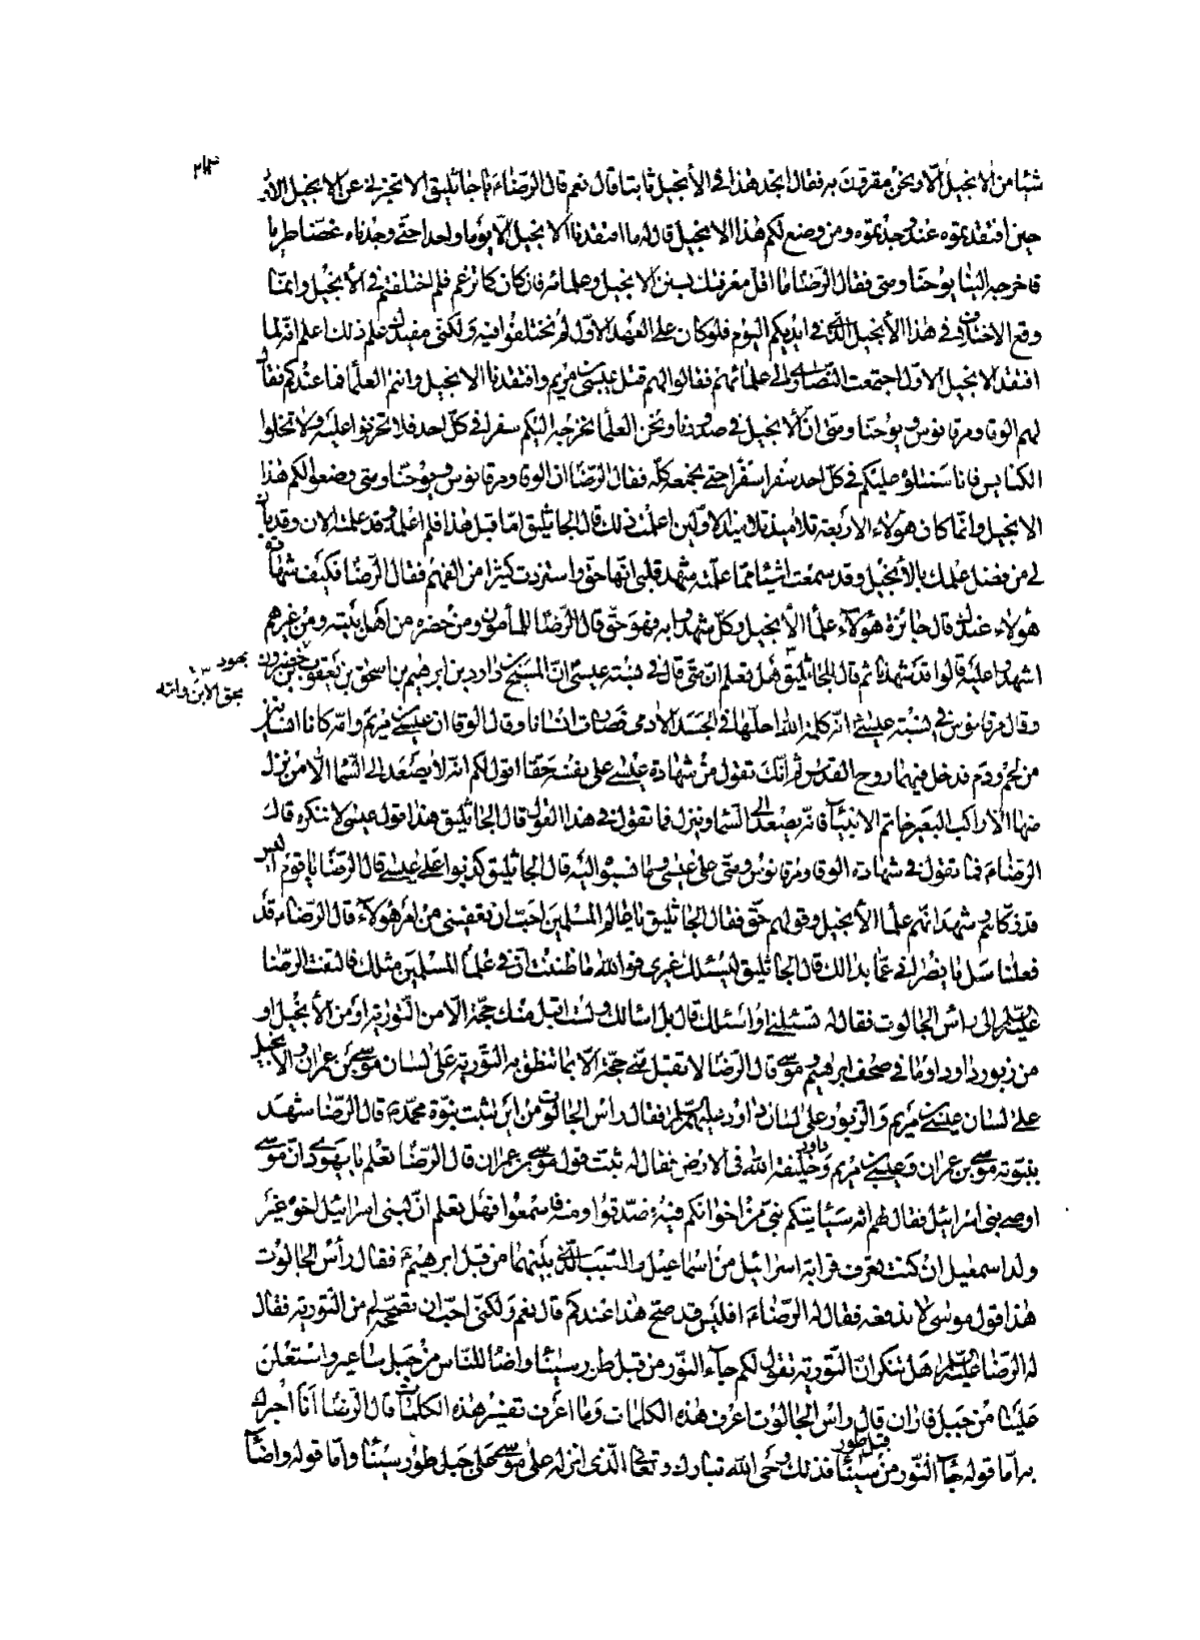 ٢١٣
شيئا من الانجيل الّا ونحن مقرون به فقال اتجد هذا في الأنجيل ثابتا قال نعم قال الرّضاء يا جاثليق الا تخبرني عن الانجيل الأوّل
حين افتقدتموه عند من وجدتموه ومن وضع لكم هذا الانجيل قال له ما افتقدنا الانجيل الّا يوما واحدا حتّى وجدناه غضّا طريا
فاخرجه الينا يوحنا ومتى فقال الرّضا ما اقلّ معرفتك بسنن الانجيل وعلمائه فان كان كما تزعم فلم اختلفتم في الأنجيل وانمّا
وقع الاختلاف في هذا الأنجيل الّذي في ايديكم اليوم فلو كان على العهد الاوّل لم تختلفوا فيه ولكنّي مفيدك علم ذلك اعلم انّه لما
افتقد الانجيل الاوّل اجتمعت النّصارى الى علمائهم فقالوا لهم قتل عيسى بن مريم وافتقدنا الانجيل وانتم العلماء فما عندكم فقال
لهم الوقا ومرقابوس ويوحنا ومتى انّ الأنجيل في صدورنا ونحن العلماء نخرجه اليكم سفرا في كلّ احد فلا تحزنوا عليه ولا تخلوا
الكنايس فانا سنتلوه عليكم في كلّ احد سفرا سفرا حتى نجمعه كلّه فقال الرّضا ان الوقا ومرقابوس ويوحنّا ومتى وضعوا لكم هذا
الانجيل وانّما كان هؤلاء الاربعة تلاميذ تلاميذ الاولين اعلمت ذلك قال الجاثليق امّا قبل هذا فلم اعلمه وقد علمته الان وقد بان
لي من فضل علمك بالأنجيل وقد سمعت اشياء ممّا علمته شهد قلبي انّها حقّ واستزدت كثيرا من الفهم فقال الرّضا فكيف شهادة
هؤلاء عندك قال جائزة هؤلاء علماء الأنجيل وكلّ ما شهدوا به فهو حقّ قال الرّضا للمأمون ومن حضره من اهل بيته ومن غيرهم
اشهدوا عليه قالوا قد شهدنا ثم قال للجاثليق هل تعلم انّ متى قال في نسبة عيسى انّ المسيح بن داود بن ابرهيم بن اسحق بن يعقوب بن خضرون
يهود
بحق الابن وامّه
وقال مرقابوس في نسبة عيسى انّه كلمة الله احلّها في الجسد الادمي فصارت انسانا وقال الوقا ان عيسى بن مريم وامّه كانا انسانين
من لحم ودم فدخل فيهما روح القدس ثم انّك تقول من شهادة عيسى على نفسه حقّا اقول لكم انّه لا يصعد الى السّماء الّا من نزل
منها الّا راكب البعير خاتم الانبياء فانّه يصعد الى السّماء وينزل فما تقول في هذا القول قال الجاثليق هذا قول عيسى لا ننكره قال
الرّضاء فما تقول في شهادة الوقا ومرقابوس ومتى على عيسى وما نسبوا اليه قال الجاثليق كذبوا على عيسى قال الرّضا يا قوم اليس
قد زكّاهم وشهد انّهم علماء الأنجيل وقولهم حقّ فقال الجاثليق يا عالم المسلمين احبّ ان تعفيني من امر هؤلاء قال الرّضاء قد
فعلنا سل يا نصراني عمّا بدا لك قال الجاثليق ليسئلك غيري فوالله ما ظننت انّ في علماء المسلمين مثلك فالتفت الرّضا
عليه السلام الى رأس الجالوت فقال له تسئلني او اسئلك قال بل اسألك ولست اقبل منك حجّة الّا من التّورية او من الأنجيل او
من زبور داود او ما في صحف ابرهيم وموسى قال الرّضا لا تقبل منّي حجّة الّا بما تنطق به التّورية على لسان موسى بن عمران والانجيل
على لسان عيسى بن مريم والزّبور على لسان داود عليهم السلام فقال رأس الجالوت من اين تثبت نبوّة محمّد ص قال الرّضا شهد
بنبوته موسى بن عمران وعيسى بن مريم وداود خليفة الله في الارض فقال له ثبت قول موسى بن عمران قال الرّضا تعلم يا يهودي انّ موسى
اوصى بني اسرائيل فقال لهم انّه سيأتيكم نبيّ من اخوانكم فبه فصدّقوا ومنه فاسمعوا فهل تعلم انّ لبني اسرائيل اخوة غير
ولد اسمعيل ان كنت تعرف قرابة اسرائيل من اسماعيل والنسب الّذي بينهما من قبل ابرهيم ع فقال رأس الجالوت
هذا قول موسى لا ندفعه فقال له الرّضاء افليس قد صحّ هذا عندكم قال نعم ولكنّي احبّ ان تصحّحه لي من التّورية فقال
له الرّضا عليه السلام هل تنكر انّ التّورية تقول لكم جاء النّور من قبل طور سيناء واضاء للنّاس من جبل ساعير واستعلن
علينا من جبل فاران قال رأس الجالوت اعرف هذه الكلمات وما اعرف تفسير هذه الكلمات قال الرّضا انا اخبرك
به امّا قوله جاء النّور من قبل طور سيناء فذلك وحي الله تبارك وتعالى الّذي انزله على موسى على جبل طور سيناء وامّا قوله واضاء